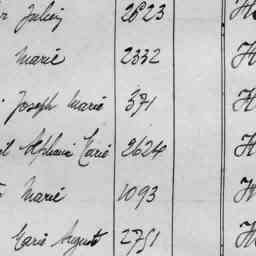 Julien 2623 H
Marie 2332 H
Joseph Marie 371 H
Alphonse Marie 2624 H
Marie 1093 H
Marie Auguste 2751 H